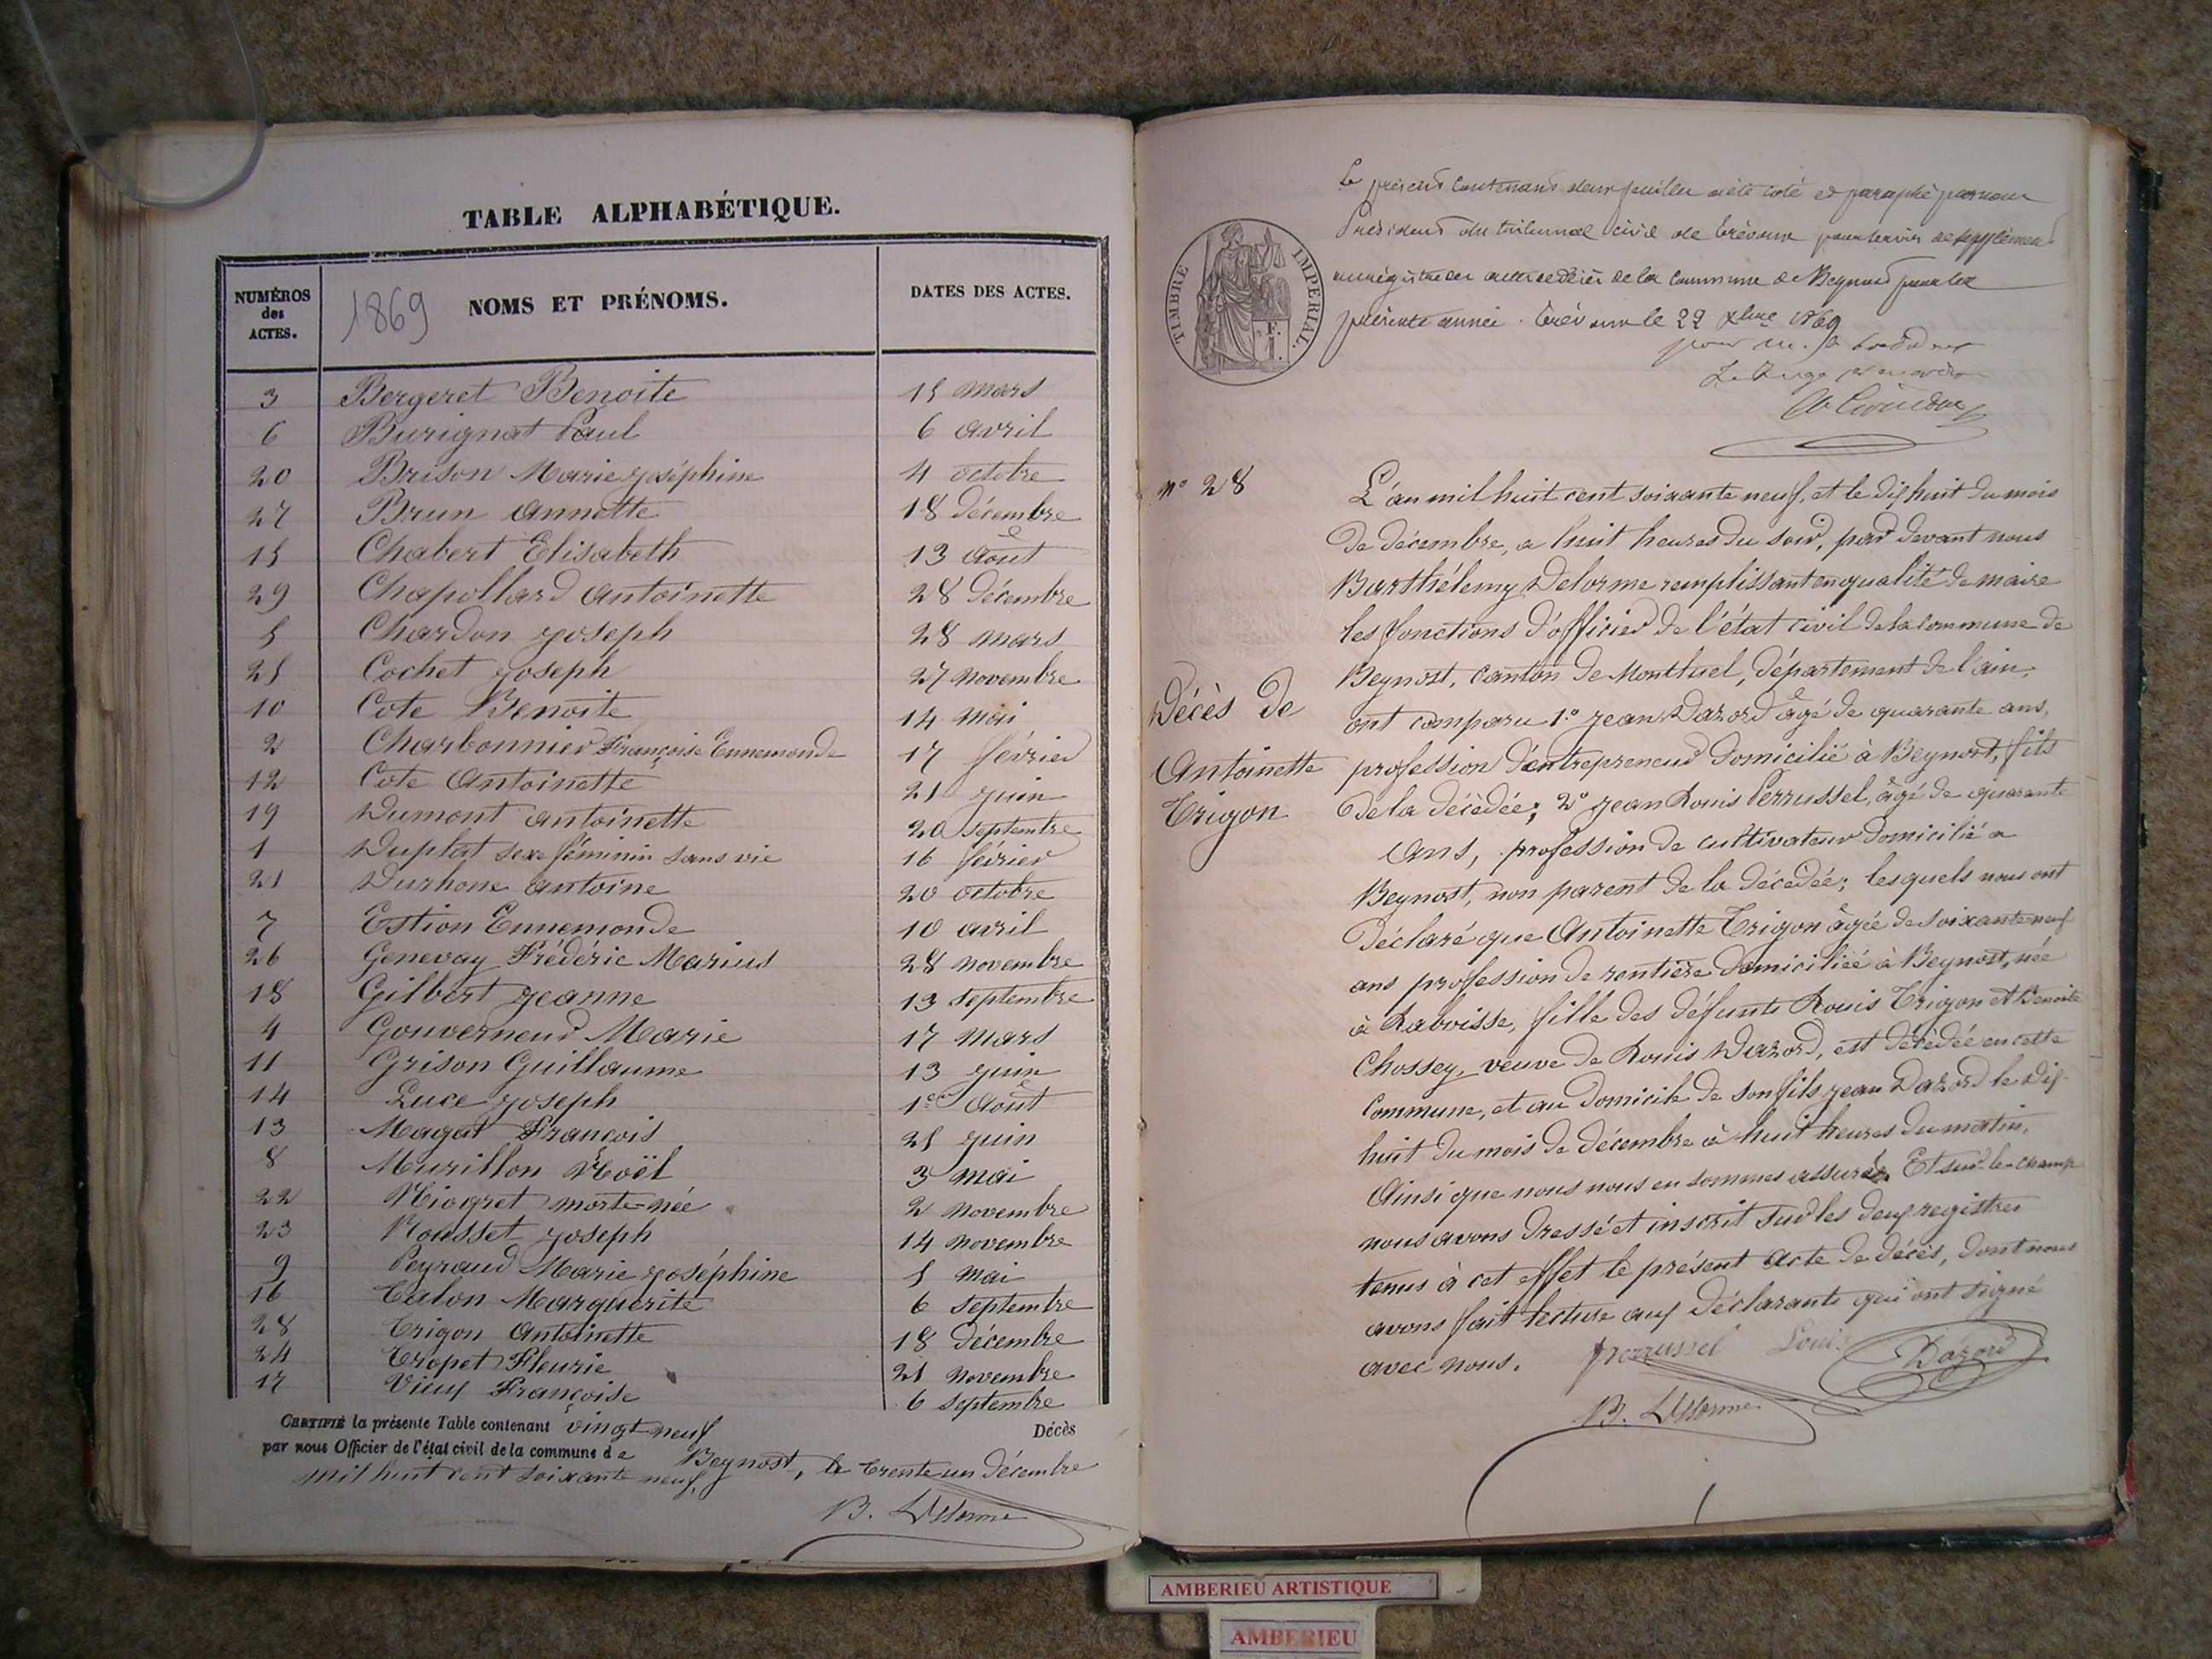 TABLE ALPHABÉTIQUE.
NUMÉROS des ACTES.
1869
NOMS ET PRÉNOMS.
DATES DES ACTES.
3 Bergeret Benoite 15 mars
6 Burignat Paul 6 avril
20 Brison Marie Joséphine 4 octobre
27 Brun Annette 18 décembre
15 Chabert Elisabeth 13 Août
29 Chapollard Antoinette 28 décembre
5 Chardon Joseph 28 mars
25 Cochet Joseph 27 novembre
10 Cote Benoite 14 mai
2 Charbonnier Françoise Ennemonde 17 février
12 Cote Antoinette 21 juin
19 Dumont Antoinette 20 septembre
1 Duplat sexe féminin sans vie 16 février
21 Durhone Antoine 20 octobre
7 Estion Ennemonde 10 avril
26 Genevay Frédéric Marius 28 novembre
18 Gilbert Jeanne 13 septembre
4 Gouverneur Marie 17 mars
11 Grison Guillaume 13 juin
14 Luce Joseph 1er Août
13 Magat François 25 juin
8 Murillon Noël 3 mai
22 Niogret morte-née 2 novembre
23 Nousset Joseph 14 novembre
9 Peyraud Marie Joséphine 5 mai
16 Talon Marguerite 6 septembre
28 Trigon Antoinette 18 décembre
24 Tropet Fleurie 21 novembre
17 Vieux Françoise 6 septembre
CERTIFIÉ la présente Table contenant vingt neuf Décès
par nous Officier de l'état civil de la commune de Beynost, le trente un décembre
mil huit cent soixante neuf.
B. Delorme
TIMBRE IMPÉRIAL
Le présent contenant deux feuilles a été coté et paraphé par nous
Président du tribunal civil de Trévoux pour servir de supplément
au registre des actes de décès de la commune de Beynost pour la
présente année. Trévoux le 22 xbre 1869
Le Juge
n° 28
Décès de
Antoinette
Trigon
L'an mil huit cent soixante neuf, et le dix huit du mois
de décembre, a huit heures du soir, par devant nous
Barthélemy Delorme remplissant en qualité de maire
les fonctions d'officier de l'état civil de la commune de
Beynost, canton de Montluel, département de l'ain,
ont comparu 1° Jean Dazord âgé de quarante ans,
profession d'entrepreneur domicilié à Beynost, fils
de la décédée; 2° Jean Louis Perrussel, âgé de quarante
ans, profession de cultivateur domicilié a
Beynost, non parent de la décedée; lesquels nous ont
déclaré que Antoinette Trigon âgée de soixante neuf
ans profession de rentière domiciliée à Beynost, née
à Laboisse, fille des défunts Louis Trigon et Benoite
Chossey, veuve de Louis Dazord, est décédée en cette
commune, et au domicile de son fils Jean Dazord le dix-
huit du mois de décembre à huit heures du matin,
Ainsi que nous nous en sommes assurés. Et sur-le-champ
nous avons dressé et inscrit sur les deux registres
tenus à cet effet le présent acte de décès, dont nous
avons fait lecture aux déclarants qui ont signé
avec nous.
perrussel Louis Dazord
B. Delorme
AMBERIEU ARTISTIQUE
AMBERIEU